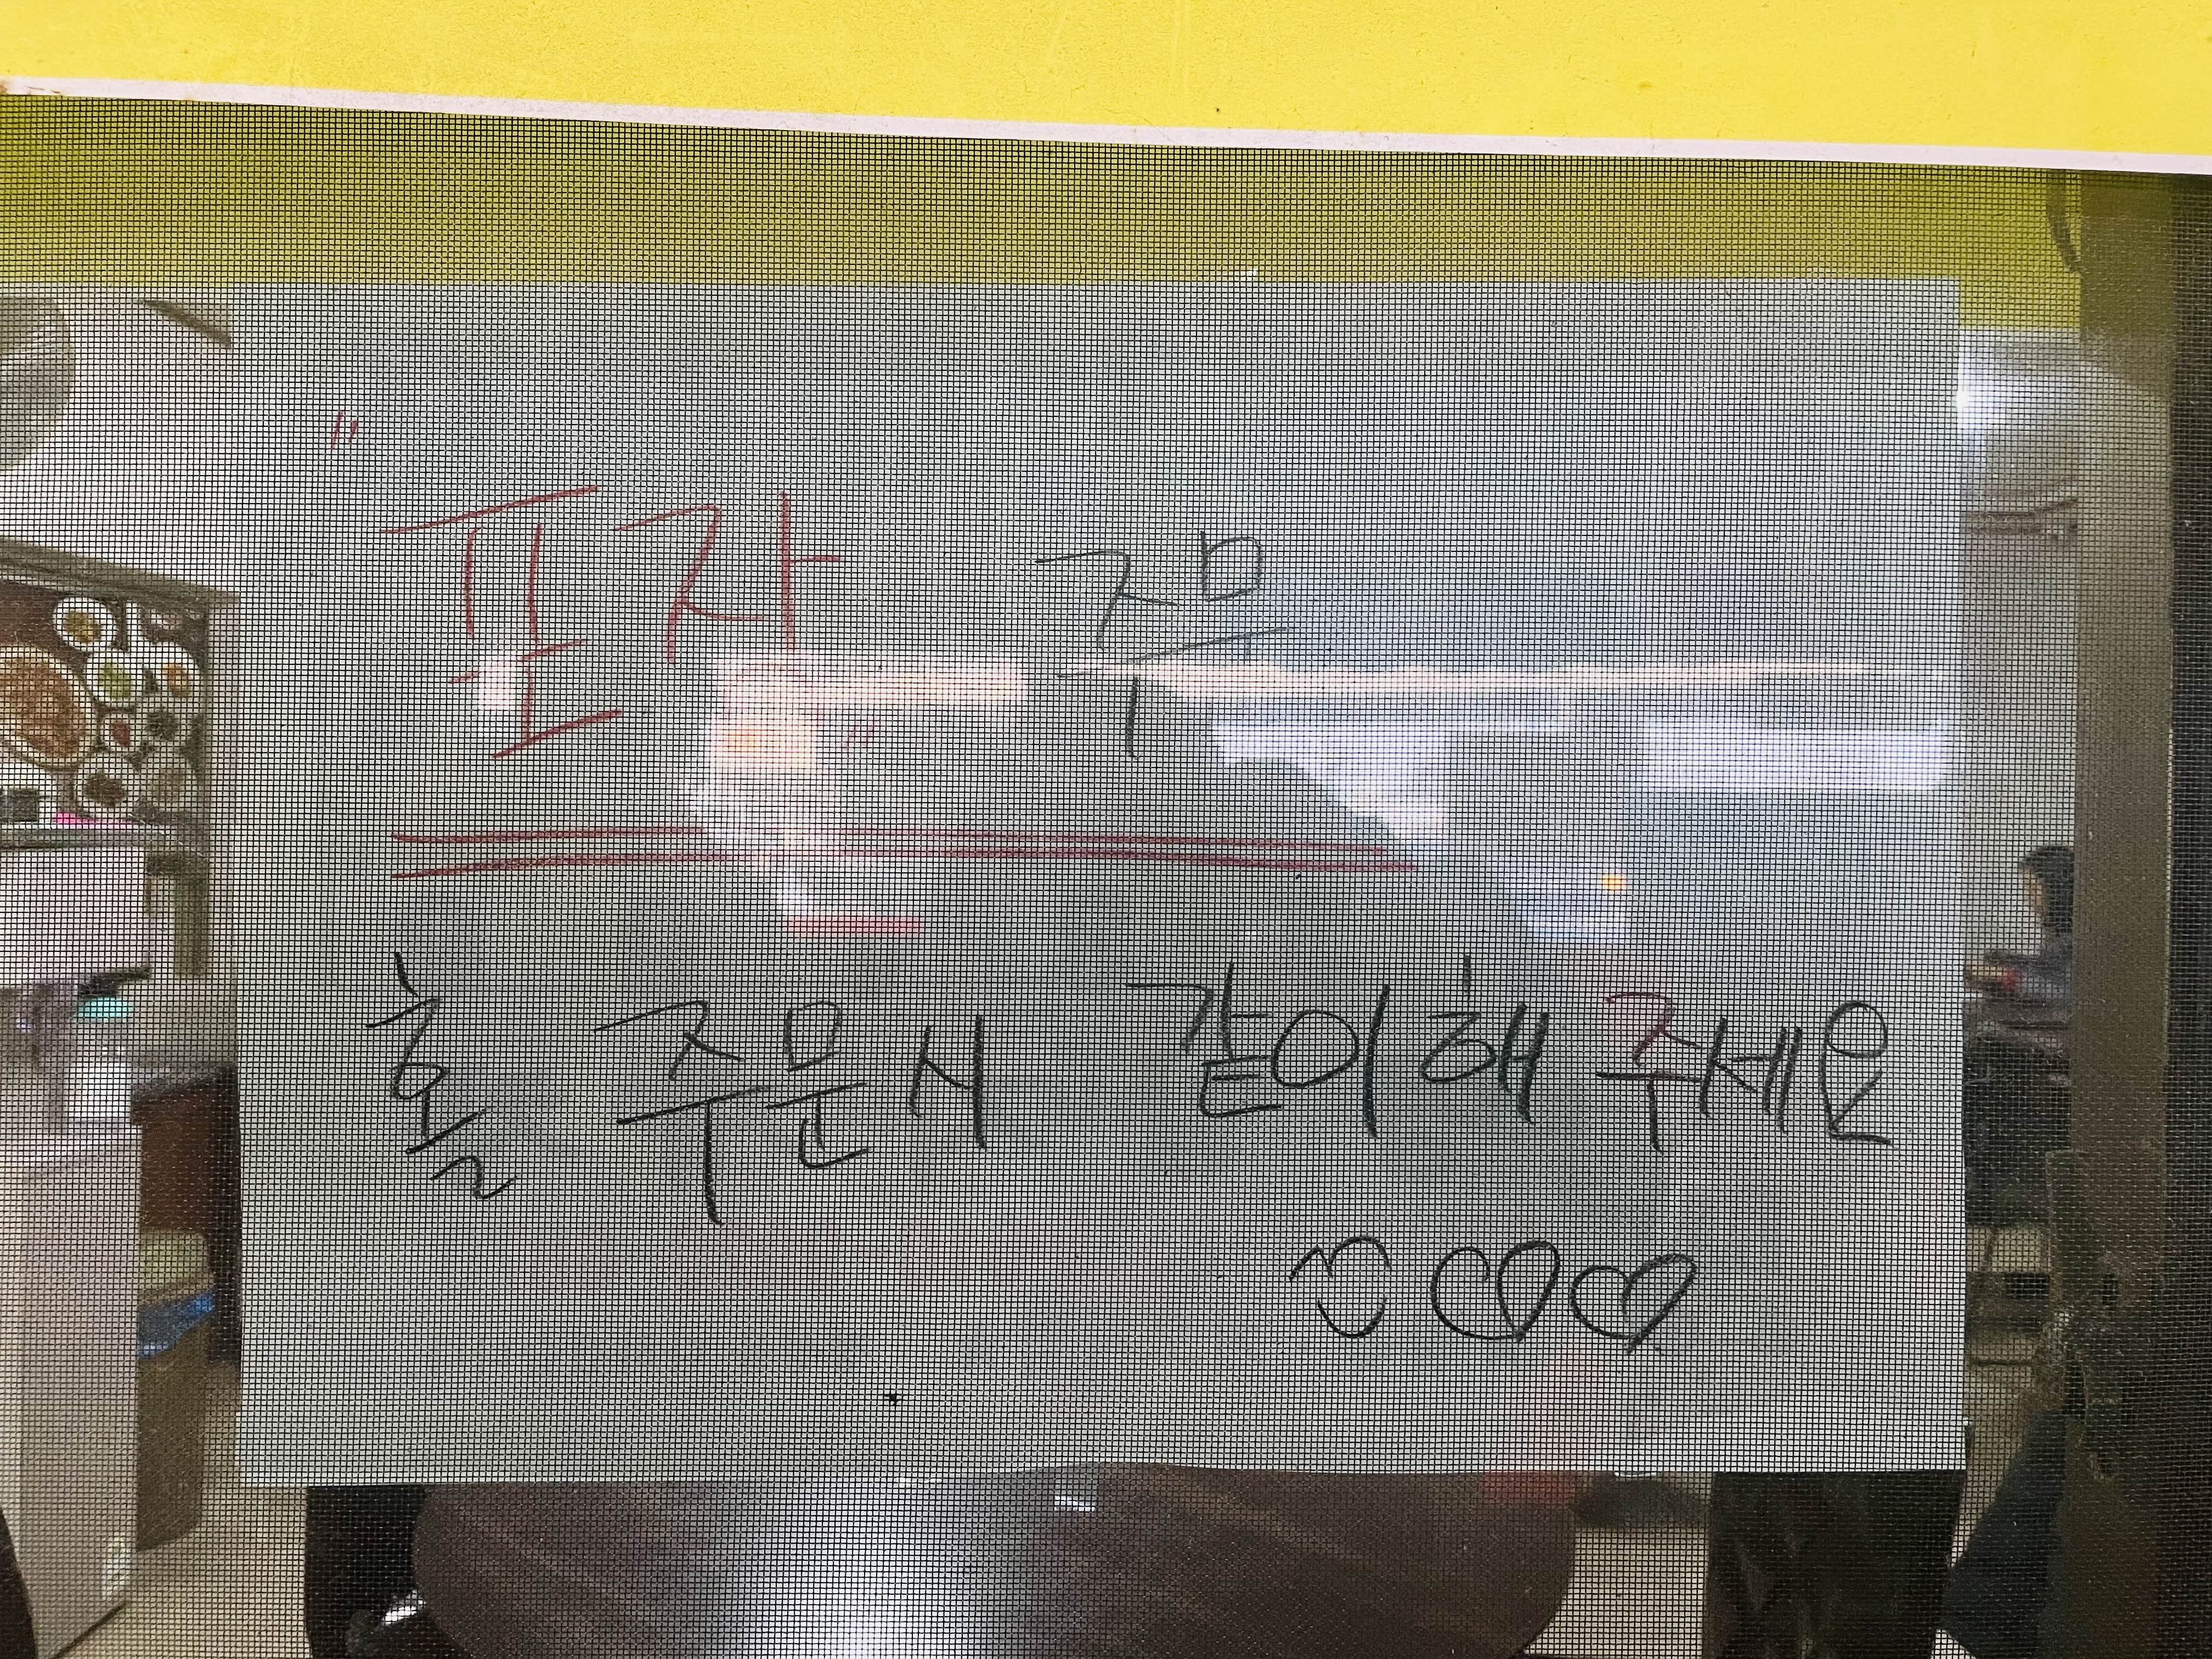 "포장" 주문
홀 주문시 같이해 주세요
♡♡